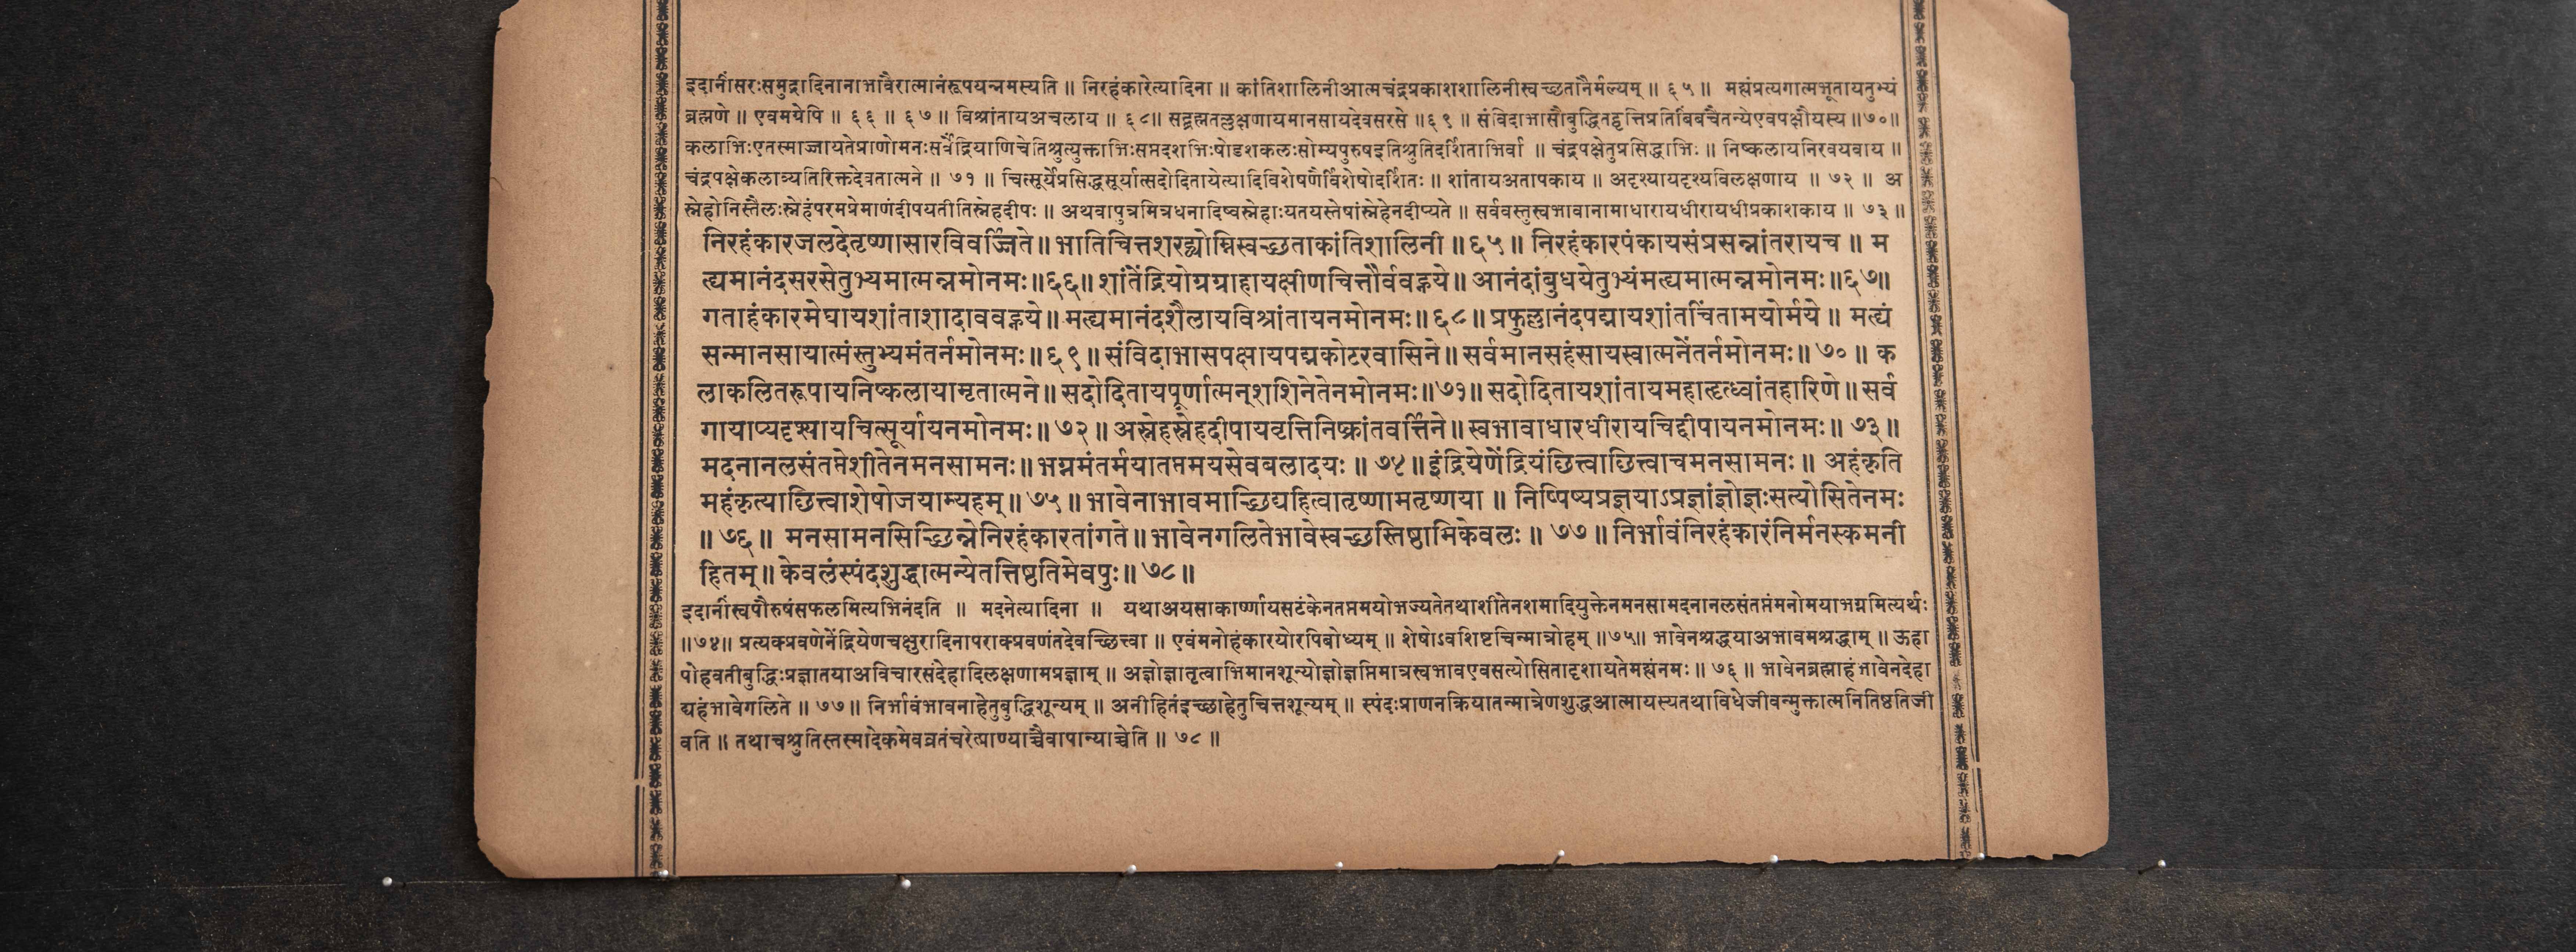 इदानींसरःसमुद्रादिनानाभावैरात्मानंरूपयन्नमस्यति ॥ निरहंकारेत्यादिना ॥ कांतिशालिनीआत्मचंद्रप्रकाशशालिनीस्वच्छतांनैर्मल्यम् ॥ ६५ ॥ मह्यंप्रत्यगात्मभूतायतुभ्यं
ब्रह्मणे ॥ एवमग्रेपि ॥ ६६ ॥ ६७ ॥ विश्रांतायअचलाय ॥ ६८॥ सद्ब्रह्मतल्लक्षणायमानसायदेवसरसे ॥६९ ॥ संविदाभासौबुद्धितद्वृत्तिप्रतिबिंबचैतन्येएवपक्षौयस्य ॥७०॥
कलाभिःएतस्माज्जायतेप्राणोमनःसर्वेंद्रियाणिचेतिश्रुत्युक्ताभिःसप्तदशभिःषोडशकलःसोम्यपुरुषइतिश्रुतिदर्शिताभिर्वा ॥ चंद्रपक्षेतुप्रसिद्धाभिः ॥ निष्कलायनिरवयवाय ॥
चंद्रपक्षेकलाव्यतिरिक्तदेवतात्मने ॥ ७१ ॥ चित्सूर्येप्रसिद्धसूर्यात्सदोदितायेत्यादिविशेषणैर्विशेषोदर्शितः ॥ शांतायअतापकाय ॥ अदृश्यायदृश्यविलक्षणाय ॥ ७२ ॥ अ
स्नेहोनिस्तैलःस्नेहंपरमप्रेमाणंदीपयतीतिस्नेहदीपः ॥ अथवापुत्रमित्रधनादिष्वस्नेहाःयतयस्तेषांस्नेहेनदीप्यते ॥ सर्ववस्तुस्वभावानामाधारायधीरायधीप्रकाशकाय ॥ ७३ ॥
निरहंकारजलदेतृष्णासारविवर्ज्जिते॥ भातिचित्तशरद्व्योम्निस्वच्छताकांतिशालिनी ॥ ६५॥ निरहंकारपंकायसंप्रसन्नांतरायच ॥ म
ह्यमानंदसरसेतुभ्यमात्मन्नमोनमः॥६६॥ शांतेंद्रियोग्रग्राहायक्षीणचित्तौर्ववह्नये॥ आनंदांबुधयेतुभ्यंमह्यमात्मन्नमोनमः॥६७॥
गताहंकारमेघायशांताशादाववह्नये॥ मह्यमानंदशैलायविश्रांतायनमोनमः॥ ६८॥ प्रफुल्लानंदपद्मायशांतचिंतामयोर्मये ॥ मह्यं
सन्मानसायात्मंस्तुभ्यमंतर्नमोनमः॥६९॥ संविदाभासपक्षायपद्मकोटरवासिने॥ सर्वमानसहंसायस्वात्मनेंतर्नमोनमः॥ ७० ॥ क
लाकलितरूपायनिष्कलायामृतात्मने॥ सदोदितायपूर्णात्मन्‌शशिनेतेनमोनमः॥७१॥ सदोदितायशांतायमहाहृद्ध्वांतहारिणे॥ सर्व
गायाप्यदृश्यायचित्सूर्यायनमोनमः॥ ७२ ॥ अस्नेहस्नेहदीपायवृत्तिनिष्क्रांतवर्त्तिने॥ स्वभावाधारधीरायचिद्दीपायनमोनमः॥ ७३॥
मदनानलसंतप्तेशीतेनमनसामनः॥ भग्नमंतर्मयातप्तमयसेवबलादयः ॥ ७४॥ इंद्रियेणेंद्रियंछित्त्वाछित्त्वाचमनसामनः ॥ अहंकृति
महंकृत्याछित्त्वाशेषोजयाम्यहम्॥ ७५ ॥ भावेनाभावमाच्छिद्यहित्वातृष्णामतृष्णया ॥ निष्पिष्यप्रज्ञयाऽप्रज्ञांज्ञोज्ञःसत्योसितेनमः
॥ ७६॥ मनसामनसिच्छिन्नेनिरहंकारतांगते॥ भावेनगलितेभावेस्वच्छस्तिष्ठामिकेवलः ॥ ७७ ॥ निर्भावंनिरहंकारंनिर्मनस्कमनी
हितम्॥ केवलंस्पंदशुद्धात्मन्येतत्तिष्ठतिमेवपुः॥ ७८॥
इदानींस्वपौरुषंसफलमित्यभिनंदति ॥ मदनेत्यादिना ॥ यथाअयसाकार्ष्णायसटंकेनतप्तमयोभज्यतेतथाशीतेनशमादियुक्तेनमनसामदनानलसंतप्तंमनोमयाभग्नमित्यर्थः
॥७४॥ प्रत्यक्प्रवणेनेंद्रियेणचक्षुरादिनापराक्प्रवणंतदेवच्छित्त्वा ॥ एवंमनोहंकारयोरपिबोध्यम् ॥ शेषोऽवशिष्टचिन्मात्रोहम् ॥७५॥ भावेनश्रद्धयाअभावमश्रद्धाम् ॥ ऊहा
पोहवतीबुद्धिःप्रज्ञातयाअविचारसंदेहादिलक्षणामप्रज्ञाम् ॥ अज्ञोज्ञातृत्वाभिमानशून्योज्ञोज्ञप्तिमात्रस्वभावएवसत्योसितादृशायतेमह्यंनमः ॥ ७६ ॥ भावेनब्रह्माहंभावेनदेहा
द्यहंभावेगलिते ॥ ७७॥ निर्भावंभावनाहेतुबुद्धिशून्यम् ॥ अनीहितंइच्छाहेतुचित्तशून्यम् ॥ स्पंदःप्राणनक्रियातन्मात्रेणशुद्धआत्मायस्यतथाविधेजीवन्मुक्तात्मनितिष्ठतिजी
वति ॥ तथाचश्रुतिस्तस्मादेकमेवव्रतंचरेत्प्राण्याच्चैवापान्याच्चेति ॥ ७८ ॥